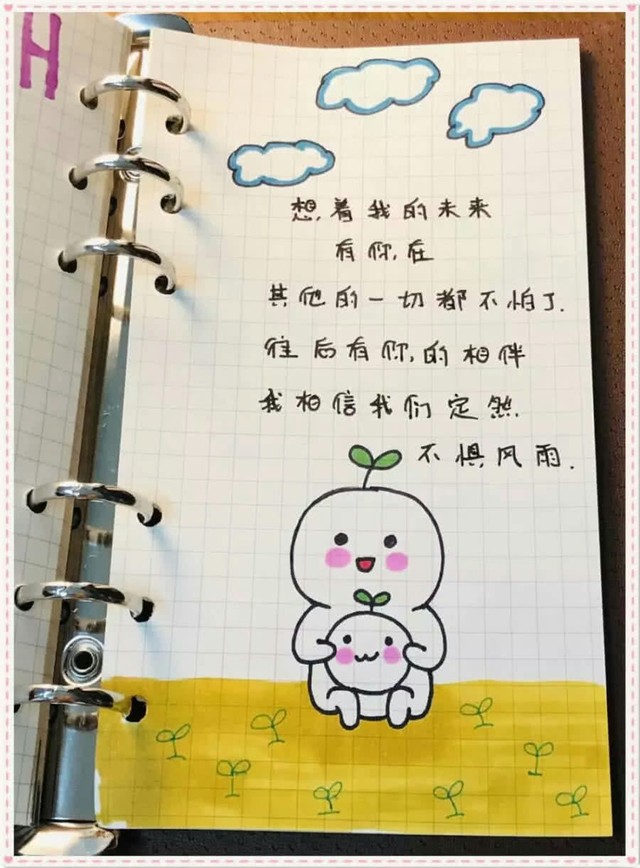 H
想着我的未来
有你在
其他的一切都不怕了.
往后有你的相伴
我相信我们定然
不惧风雨.